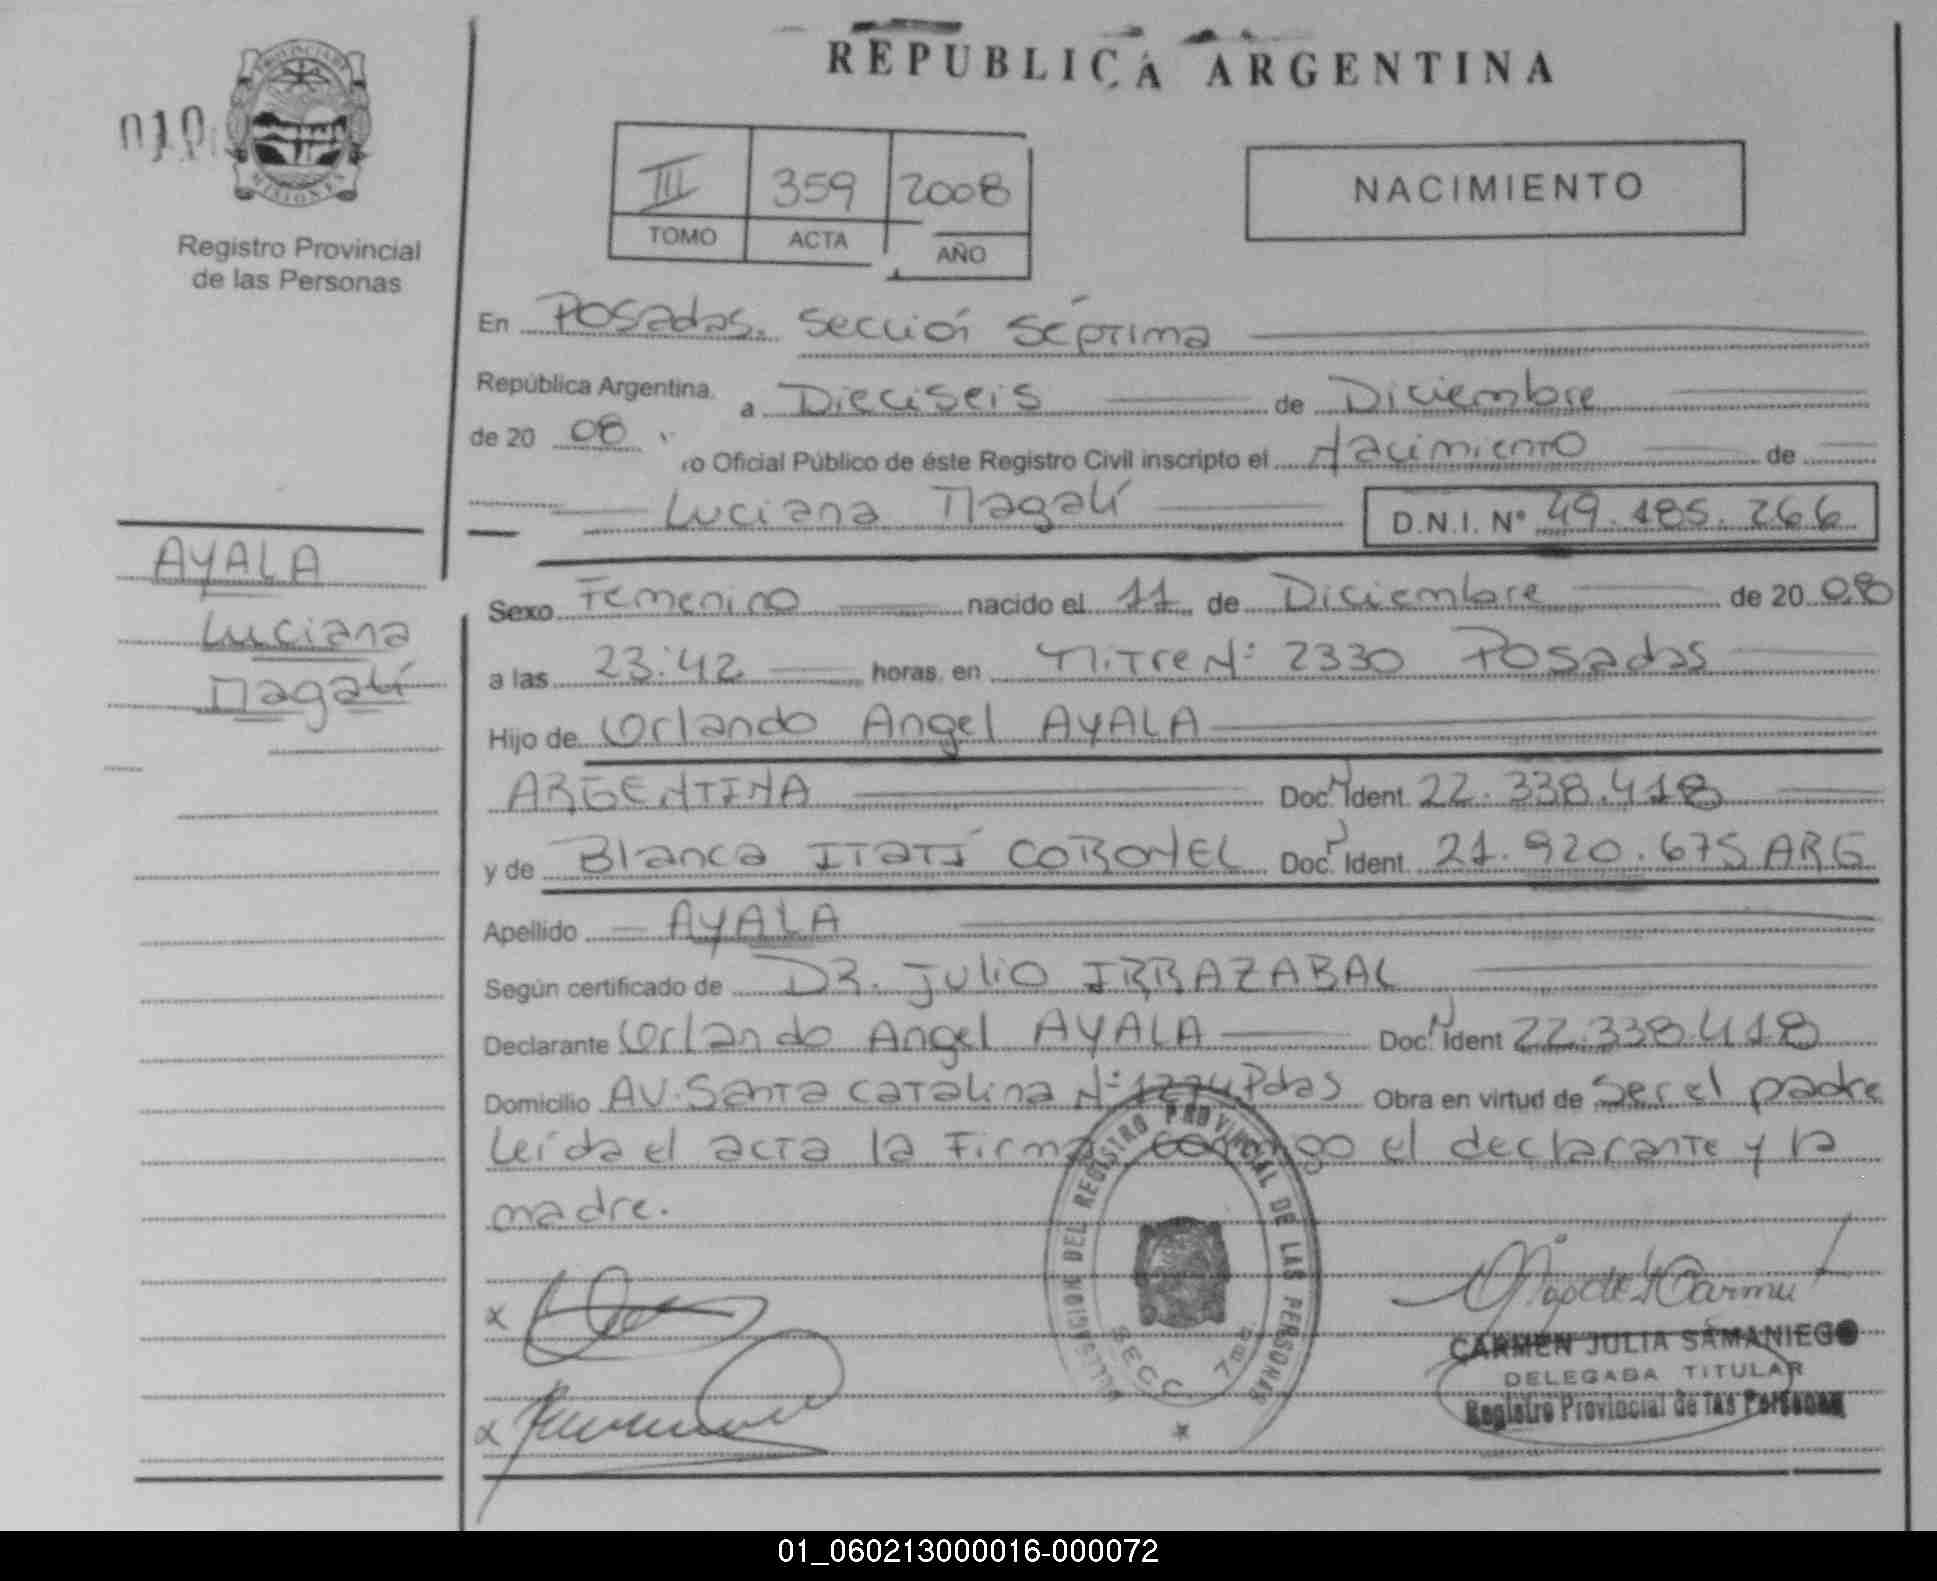 REPUBLICA ARGENTINA
PROVINCIA DE
MISIONES
010
Registro Provincial
de las Personas
III 359 2008
TOMO ACTA AÑO
NACIMIENTO
En Posadas. Secciói Séptima
República Argentina, a Dieciseis de Diciembre
de 20 08 ro Oficial Público de éste Registro Civil inscripto el Nacimiento de
Luciana Magalí D.N.I. Nº 49.185.266
AYALA
Luciana
Magalí
Sexo Femenino nacido el 11 de Diciembre de 20 08
a las 23:42 horas, en Mitre Nº 2330 Posadas
Hijo de Orlando Angel AYALA
ARGENTINA Doc. N Ident. 22.338.418
y de Blanca ITATÍ CORONEL Doc. Ident. 21.920.675 ARG
Apellido AYALA
Según certificado de DR. Julio IRRAZABAL
Declarante Orlando Angel AYALA Doc. N Ident 22.338.418
Domicilio AV. Santa Catalina Nº Pdas Obra en virtud de Ser el padre
Leída el acta la firma conmigo el declarante y la
madre.
x
x
DELEGACION DEL REGISTRO PROVINCIAL DE LAS PERSONAS
SECC. 7ma.
CARMEN JULIA SAMANIEGO
DELEGADA TITULAR
Registro Provincial de las Personas
01_060213000016-000072